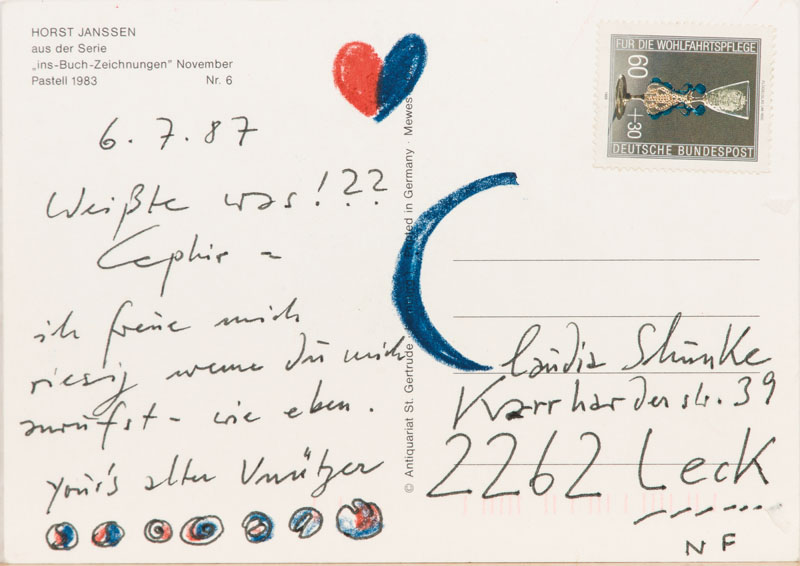 HORST JANSSEN
aus der Serie
„ins-Buch-Zeichnungen" November
Pastell 1983 Nr. 6
6.7.87
Weißte was!??
Cephir –
ich freue mich
riesig wenn Du mich
anrufst – wie eben.
your's alter Unnützer
© Antiquariat St. Gertrude · in Germany · Mewes
FÜR DIE WOHLFAHRTSPFLEGE
60
+30
DEUTSCHE BUNDESPOST
Claudia
Karrharder str. 39
2262 Leck
NF